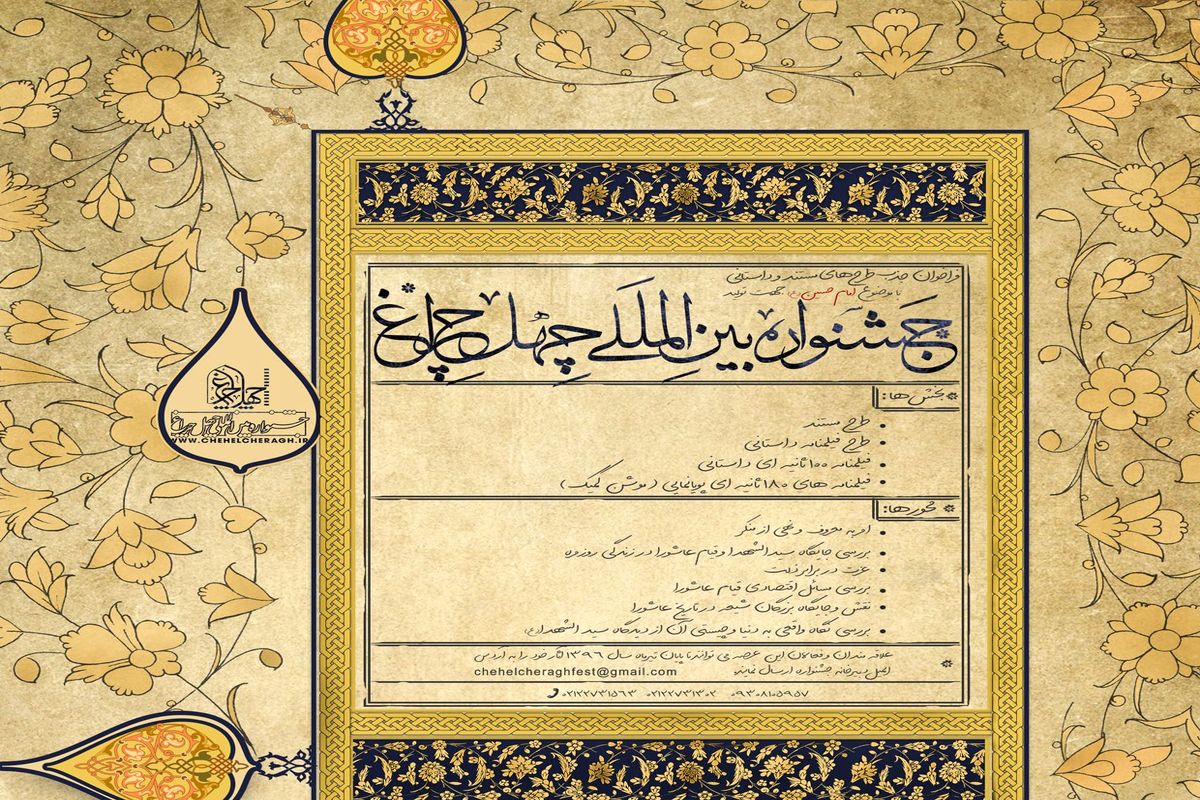 فراخوان جذب طرح‌های مستند و داستانی
با موضوع امام حسین(ع) جهت تولید
جشنواره بین المللی چهل چراغ
بخش ها:
طرح مستند
طرح فیلمنامه داستانی
فیلمنامه ۱۰۰ ثانیه ای داستانی
فیلمنامه های ۱۸۰ ثانیه ای پویانمایی (موشن گمیک)
محورها:
امر به معروف و نهی از منکر
بررسی جایگاه سید الشهدا و قیام عاشورا در زندگی روزمره
عزت در برابر ذلت
بررسی مسائل اقتصادی قیام عاشورا
نقش و جایگاه بزرگان شیعه در تاریخ عاشورا
بررسی نگاه واقعی به دنیا و چیستی آن از دیدگاه سید الشهدا(ع)
علاقه مندان و فعالان این عرصه می توانند تا پایان تیرماه سال ۱۳۹۶ اثر خود را به آدرس
ایمیل دبیرخانه جشنواره ارسال نمایند chehelcheraghfest@gmail.com
۰۲۱۲۲۷۳۱۵۶۳ ۰۲۱۲۲۷۳۱۳۰۲ ۰۹۳۰۸۱۰۵۹۵۷
چهل چراغ
جشنواره بین المللی چهل چراغ
WWW.CHEHELCHERAGH.IR